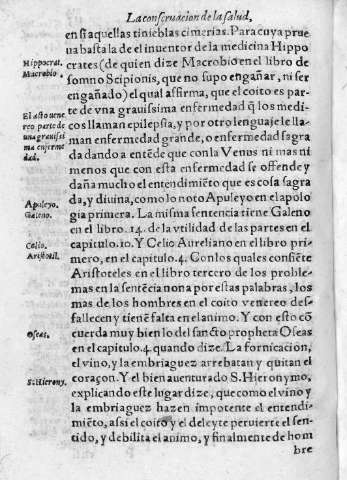 La conseruacion de la salud,
en si aquellas tinieblas cimerias. Para cuya prue
ua basta la de el inuentor de la medicina Hippo
Hippocrat.
Macrobio.
crates (de quien dize Macrobio en el libro de
somno Scipionis, que no supo engañar, ni ser
engañado) el qual affirma, que el coito es par-
El acto uene
reo parte de
una grauissi
ma enferme
dad.
te de vna grauissima enfermedad q̃ los medi-
cos llaman epilepsia, y por otro lenguaje le lla-
man enfermedad grande, o enfermedad sagra
da dando a entẽde que con la Venus ni mas ni
menos que con esta enfermedad se offende y
daña mucho el entendimiẽto que es cosa sagra
Apuleyo.
Galeno.
da, y diuina, como lo noto Apuleyo en el apolo
gia primera. La misma sentencia tiene Galeno
en el libro .14. de la vtilidad de las partes en el
Celio.
Aristotil.
capitulo.10. Y Celio Aureliano en el libro pri-
mero, en el capitulo.4. Con los quales consiẽte
Aristoteles en el libro tercero de los proble-
mas en la sentẽcia nona por estas palabras, los
mas de los hombres en el coito venereo des-
fallecen y tienẽ falta en el animo. Y con esto cõ
Oseas.
cuerda muy bien lo del sancto propheta Oseas
en el capitulo.4. quando dize. La fornicacion,
el vino, y la embriaguez arrebatan y quitan el
S. Hierony.
coraçon. Y el bien auenturado S. Hieronymo,
explicando este lugar dize, que como el vino y
la embriaguez hazen impotente el entendi-
miẽto, assi el coito y el deleyte peruierte el sen-
tido, y debilita el animo, y finalmente de hom
bre